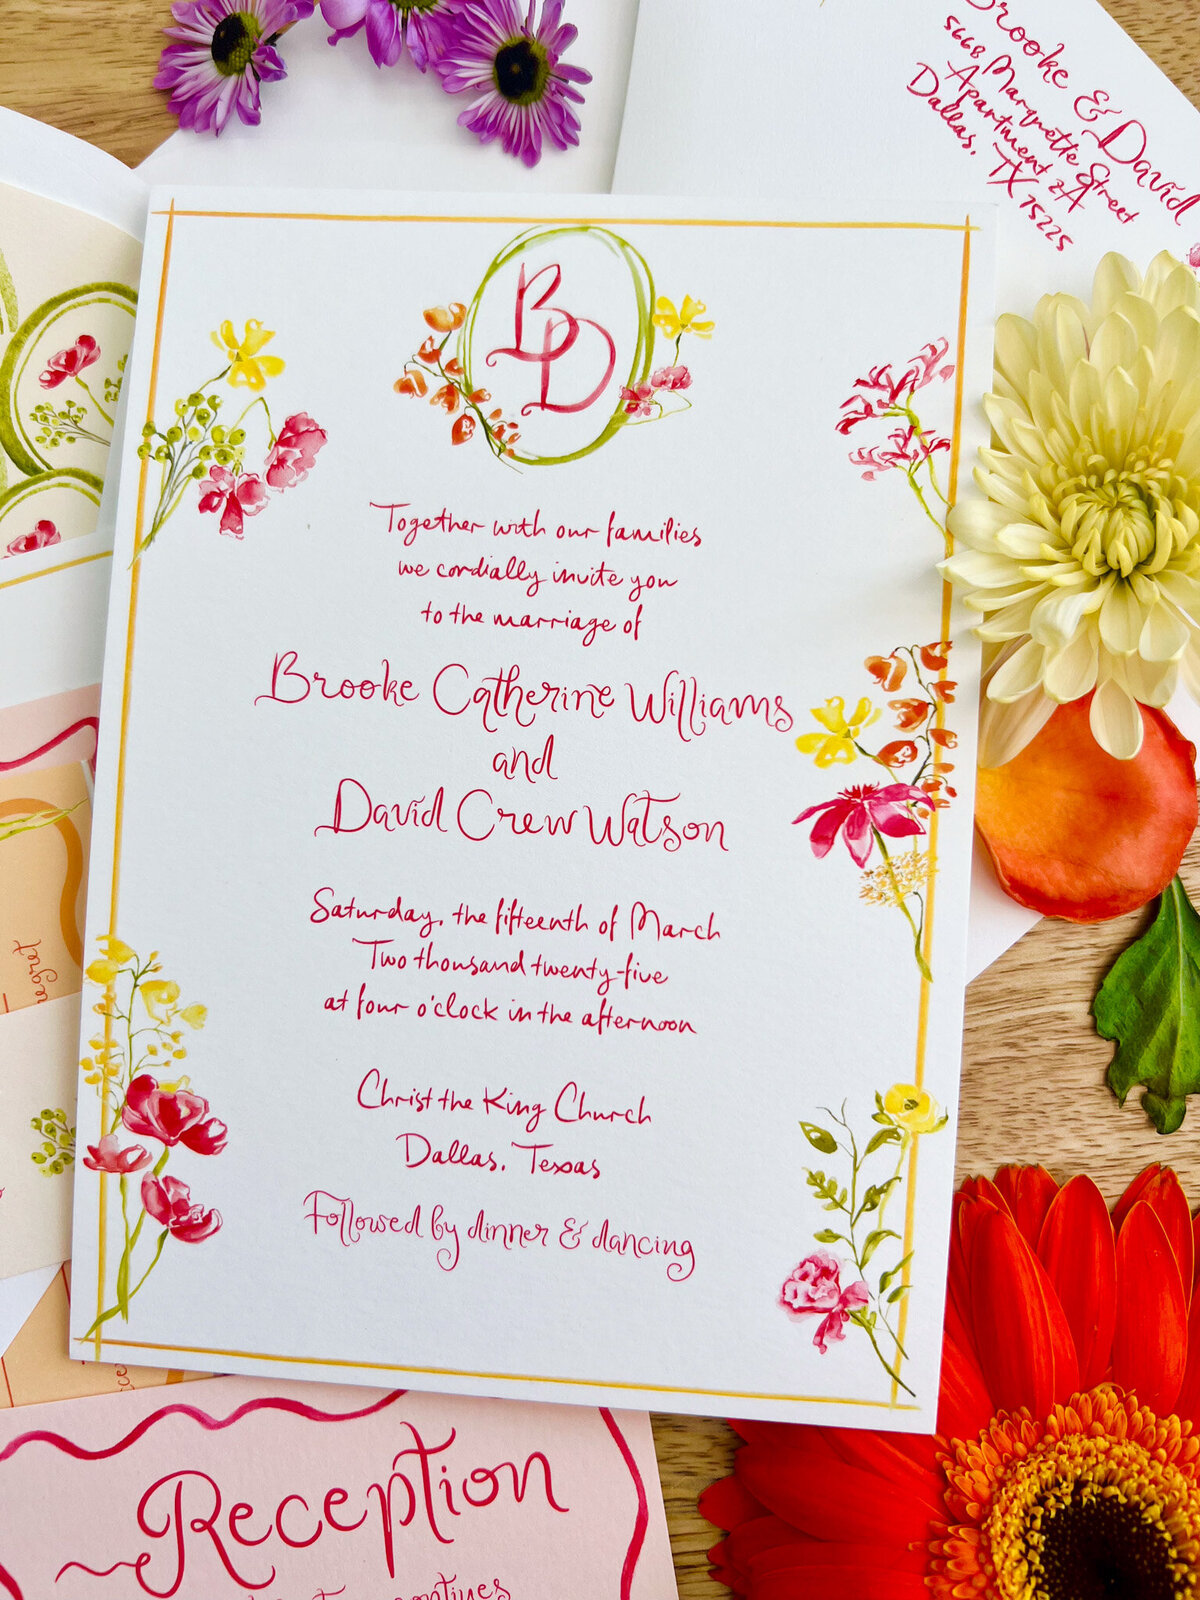 Brooke & David
5668 Marquette Street
Apartment 2A
Dallas, TX 75225
BD
Together with our families
we cordially invite you
to the marriage of
Brooke Catherine Williams
and
David Crew Watson
Saturday, the fifteenth of March
Two thousand twenty-five
at four o'clock in the afternoon
Christ the King Church
Dallas, Texas
Followed by dinner & dancing
regret
Reception